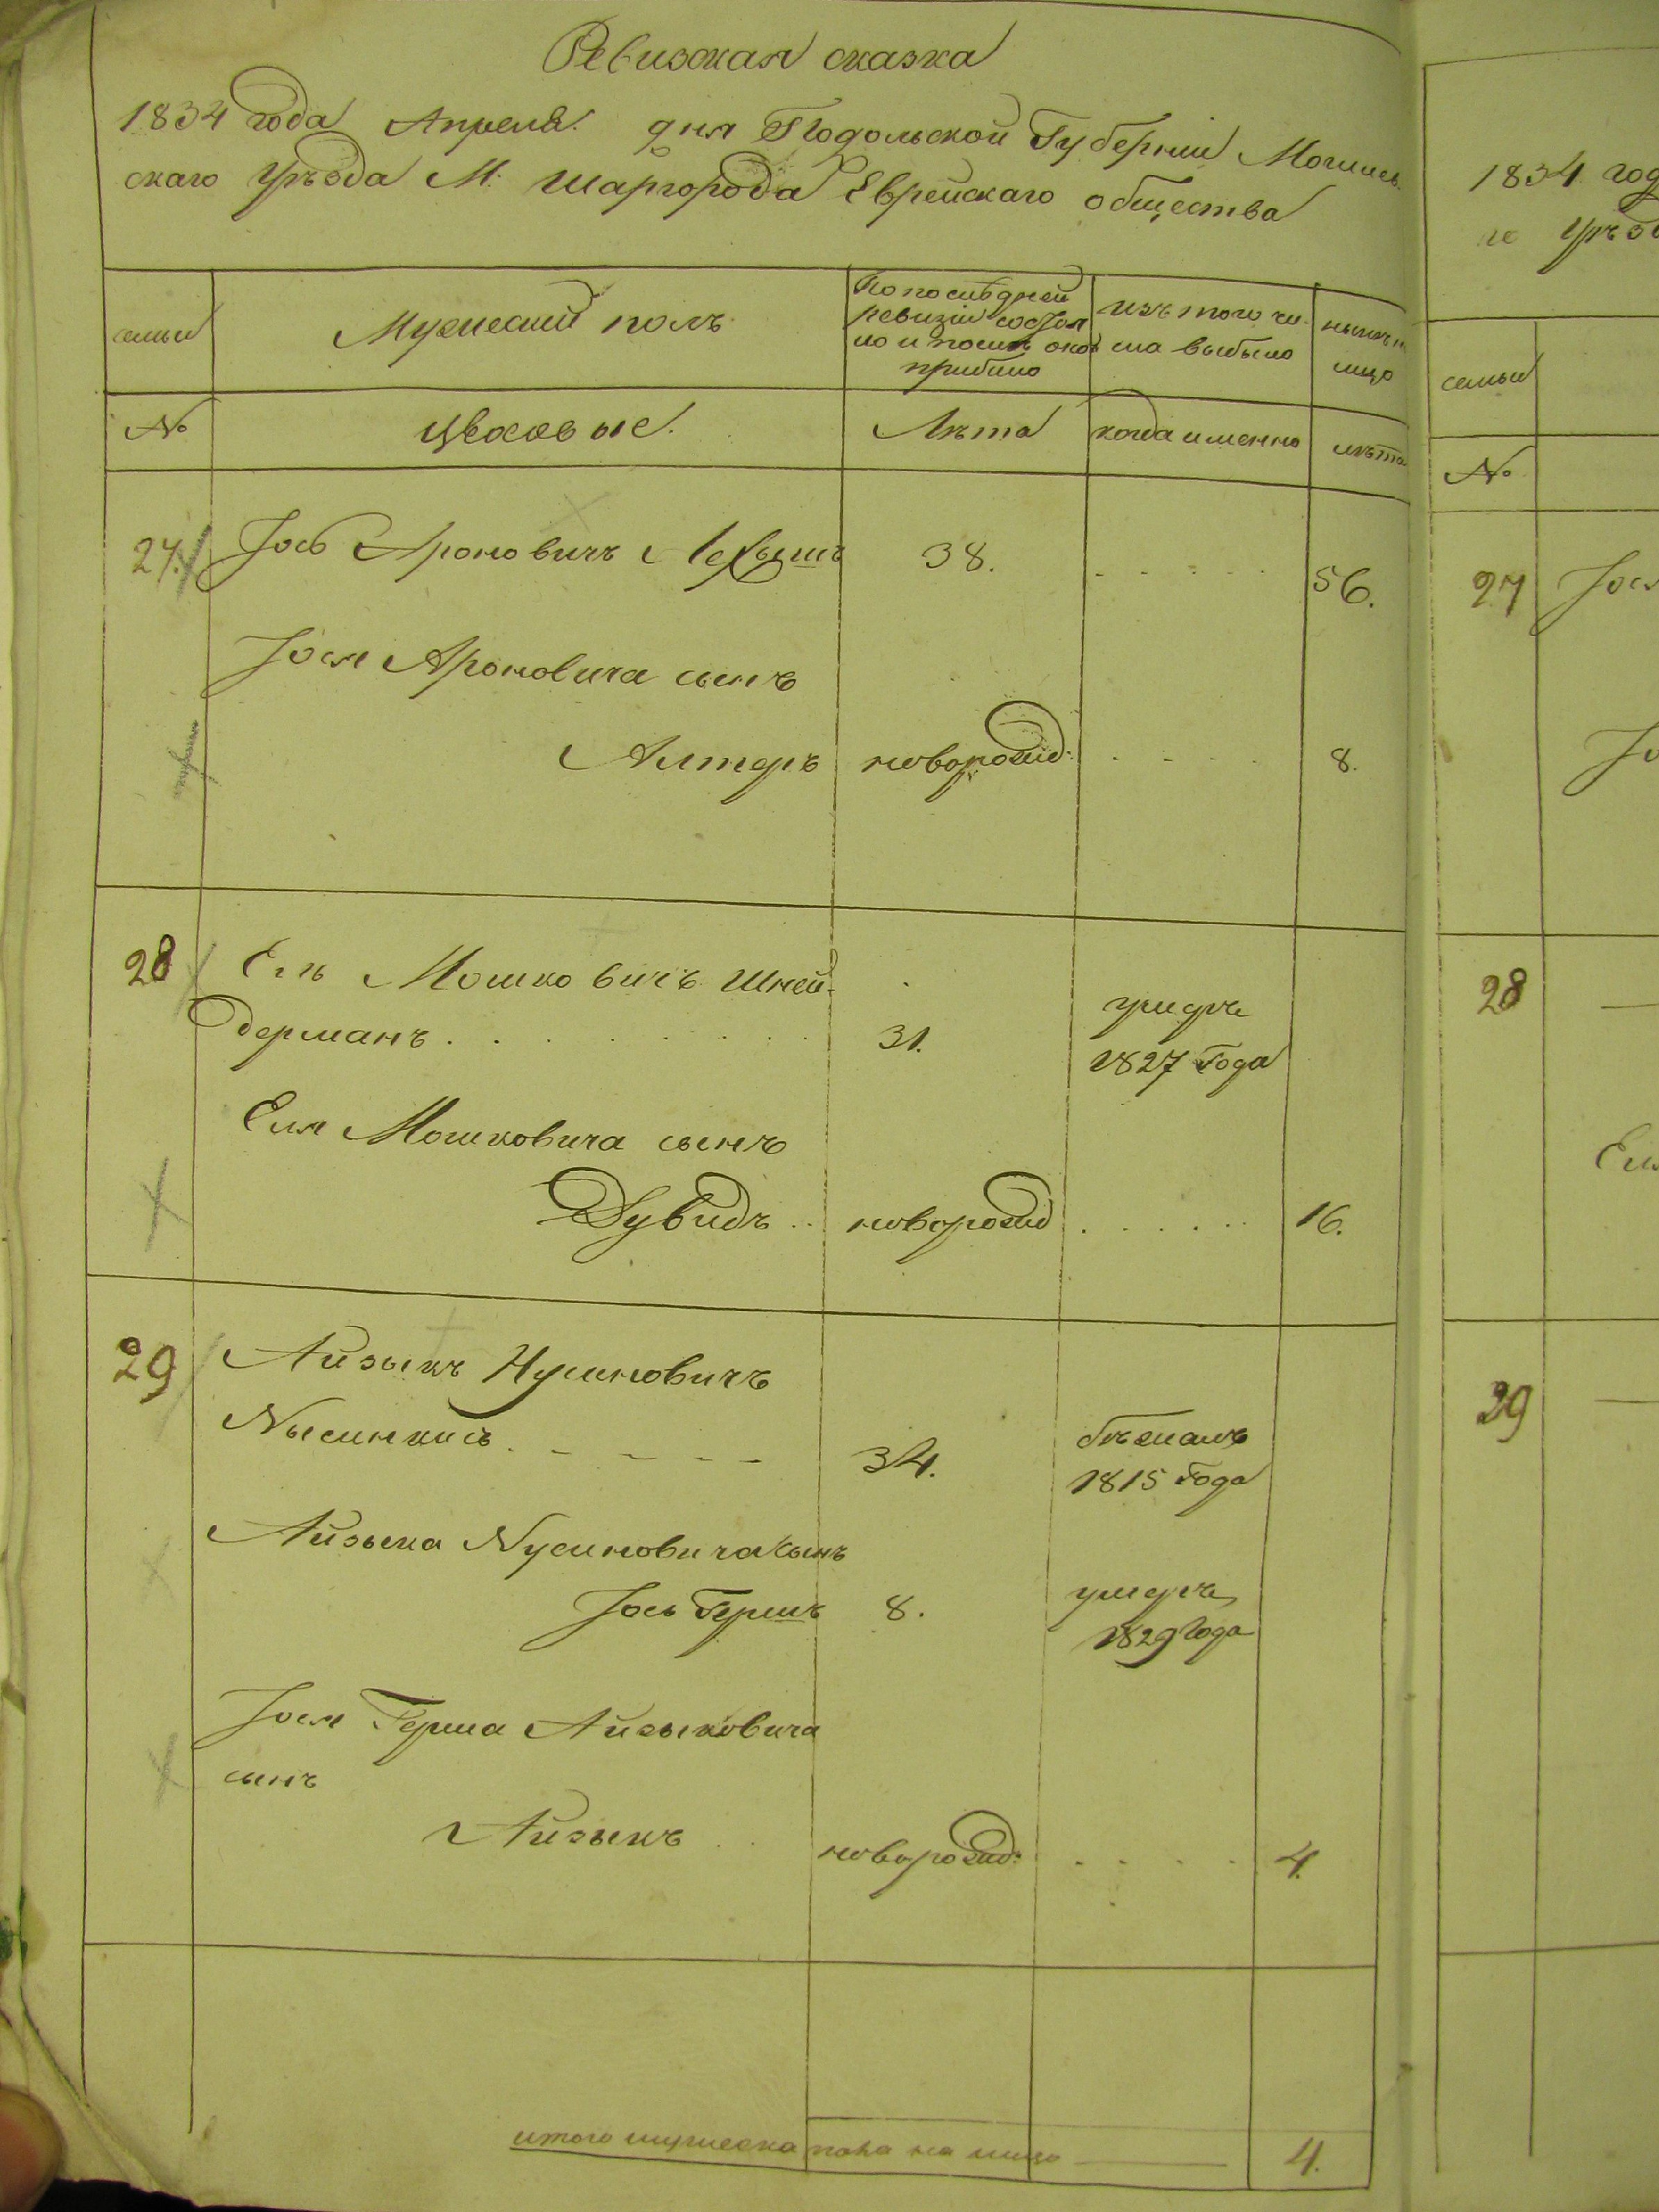 Ревизская сказка
1834 года Апреля дня Подольской Губернии Могилев
скаго Уѣзда М. Шаргорода Еврейскаго общества
семьи
Мужеский полъ
По последней
ревизии состоя
ло и после оной
прибыло
Изъ того чи
сла выбыло
ныне на
лицо
№
Лѣта
когда именно
лѣта
27.
Іось Ароновичъ
38.
56.
Іося Ароновича сынъ
Алтеръ новорожд:
8.
28
Ель Мошковичъ Шней-
дерманъ
31.
умеръ
1827 Года
Еля Мошковича сынъ
Дувидъ новорожд
16.
29
Айзыкъ Нусиновичъ
34.
бѣжалъ
1815 Года
Айзыка Нусиновича сынъ
Іось Гершъ 8.
умеръ
1829 Года
Іося Герша Айзыковича
сынъ
Айзыкъ новорожд:
4.
итого мужеска пола на лицо
4.
1834 год
го Уѣзд
семьи
№
27
Іося
28
29